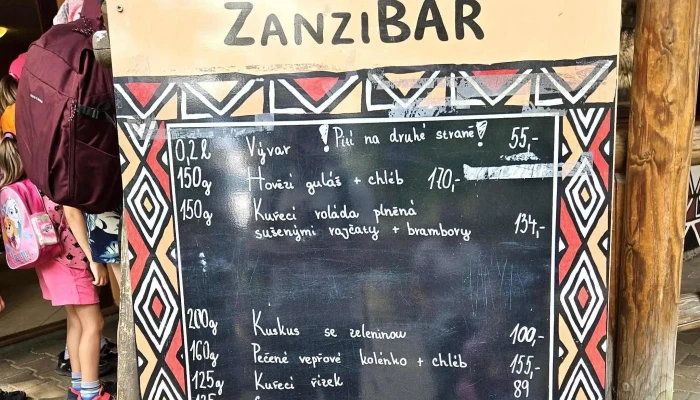 ZANZIBAR
! Pití na druhé straně!
0,2l Vývar 55,-
150g Hovězí guláš + chléb 170,-
150g Kuřecí roláda plněná
sušenými rajčaty + brambory 134,-
200g Kuskus se zeleninou 100,-
160g Pečené vepřové kolénko + chléb 155,-
125g Kuřecí řízek 89